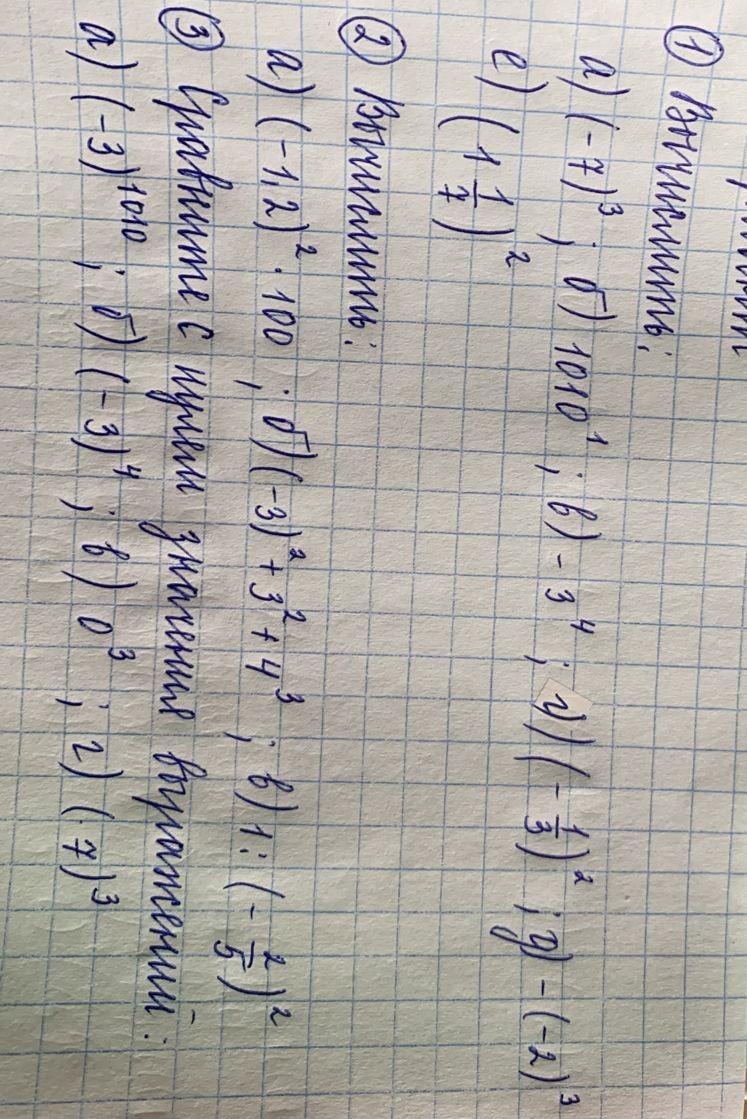 ① Вычислить:
а) (-7)³ ; б) 1010¹ ; в) -3⁴ ; г) (-1/3)² ; д) -(-2)³
е) (1 1/7)²
② Вычислить:
а) (-1,2)² · 100 ; б) (-3)² + 3² + 4³ ; в) 1 : (-2/5)²
③ Сравните с нулем значения выражений:
а) (-3)¹⁰¹⁰ ; б) (-3)⁴ ; в) 0³ ; г) (-7)³